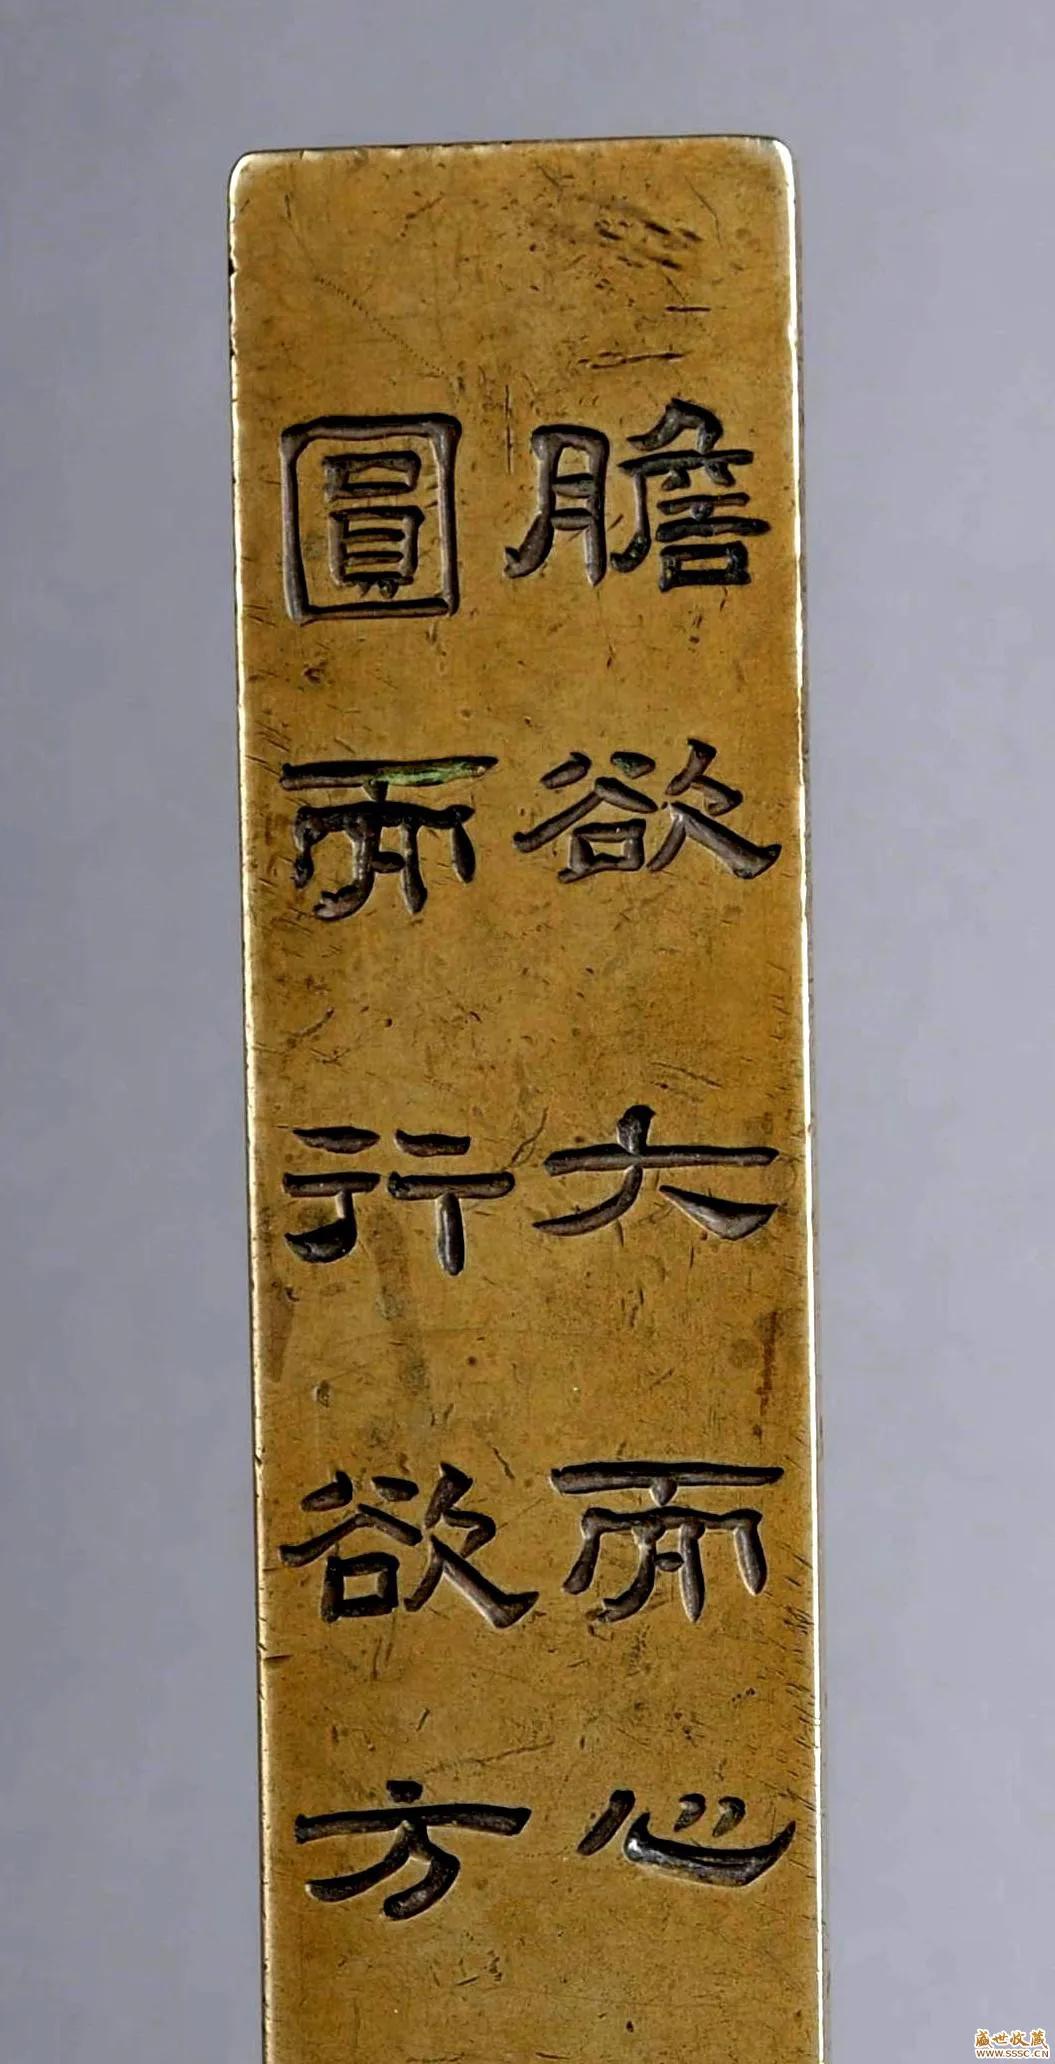 膽欲大而心
圓而行欲方
盛世收藏
WWW.SSSC.CN